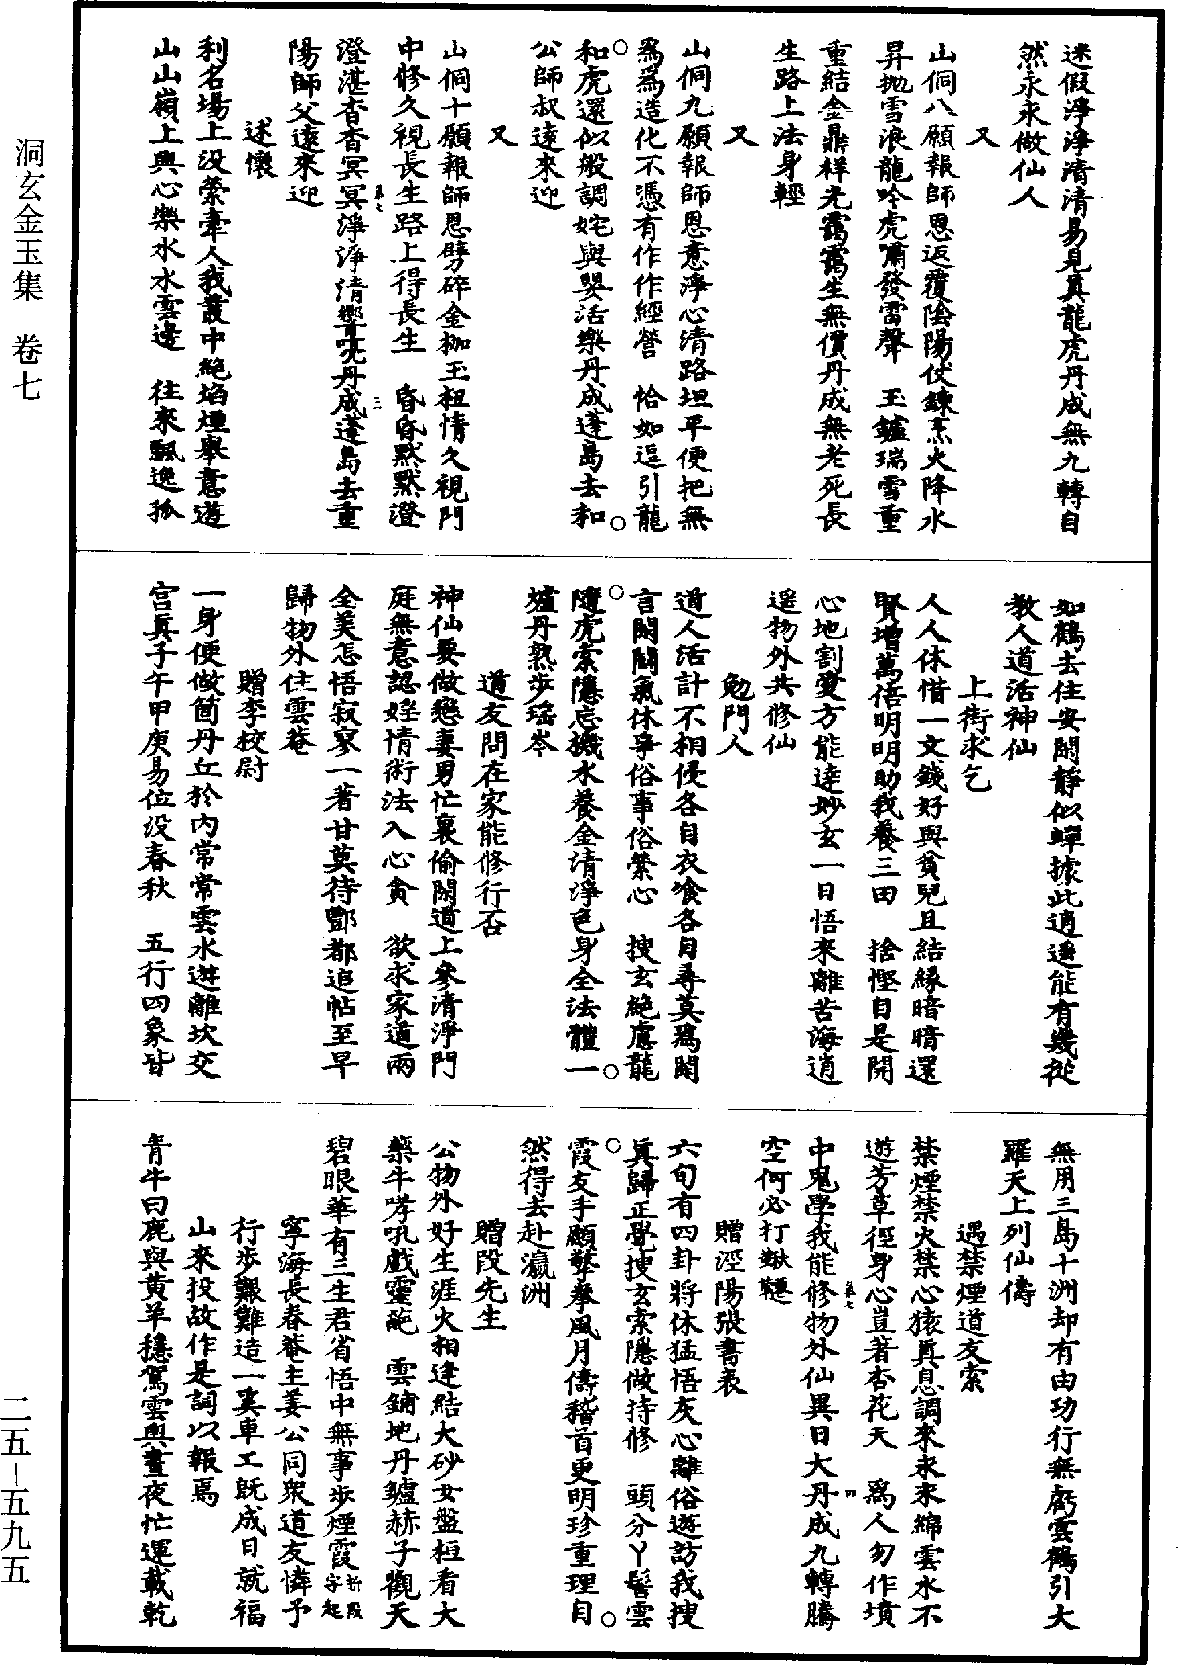 迷假淨淨清清易見真龍虎丹成無九轉自
然永永做仙人
又
山侗八願報師恩返覆陰陽仗鍊烹火降水
昇拋雪浪龍吟虎嘯發雷聲　玉鑪瑞雪重
重結金鼎祥光靄靄生無價丹成無老死長
生路上法身輕
又
山侗九願報師恩意淨心清路坦平便把無
為為造化不憑有作作經營　恰如逗引龍
和虎還似般調姹與嬰活樂丹成蓬島去和
公師叔遠來迎
又
山侗十願報師恩劈碎金枷玉杻情久視門
中修久視長生路上得長生　昏昏默默澄
澄湛杳杳冥冥淨淨清響喨丹成蓬島去重
陽師父遠來迎
述懷
利名場上没縈牽人我叢中絕焰煙舉意遊
山山嶺上興心樂水水雲邊　往來飄逸孤
如鶴去住安閑靜似蟬據此逍遥能有幾從
教人道活神仙
上街求乞
人人休惜一文錢好與貧兒且結緣暗暗還
賢增萬倍明明助我養三田　捨慳自是開
心地割愛方能達妙玄一日悟來離苦海逍
遥物外共修仙
勉門人
道人活計不相侵各自衣飡各自尋莫為閑
言閑鬬氣休爭俗事俗縈心　搜玄絕慮龍
隨虎索隱忘機水養金清淨色身全法體一
爐丹熟步瑶岑
道友問在家能修行否
神仙要做戀妻男忙裏偷閑道上參清淨門
庭無意認婬情術法入心貪　欲求家道兩
全美怎悟寂寥一著甘莫待酆都追帖至早
歸物外住雲菴
贈李校尉
一身便做箇丹丘於內常常雲水遊離坎交
宫真子午甲庚易位没春秋　五行四象皆
無用三島十洲却有由功行無虧雲鶴引大
羅天上列仙儔
遇禁煙道友索
禁煙禁火禁心猿真息調來永來綿雲水不
遊芳草徑身心豈著杏花天　為人勿作墳
中鬼學我能修物外仙異日大丹成九轉騰
空何必打鞦韆
贈涇陽張書表
六旬有四卦將休猛悟灰心離俗遊訪我搜
真歸正覺搜玄索隱做持修　頭分丫髻雲
霞友手願擎拳風月儔稽首更明珍重理自
然得去赴瀛洲
贈段先生
公物外好生涯火相逢結大砂女盤桓看大
藥牛哮吼戲靈葩　雲鋪地丹鑪赫子觀天
碧眼華有三生君省悟中無事步煙霞折段字起
寧海長春菴主姜公同衆道友憐予
行步艱難造一奚車工既成日就福
山來投故作是詞以報焉
青牛白鹿與黃羊穩駕雲輿晝夜忙運載乾
洞玄金玉集　卷七
二五—五九五